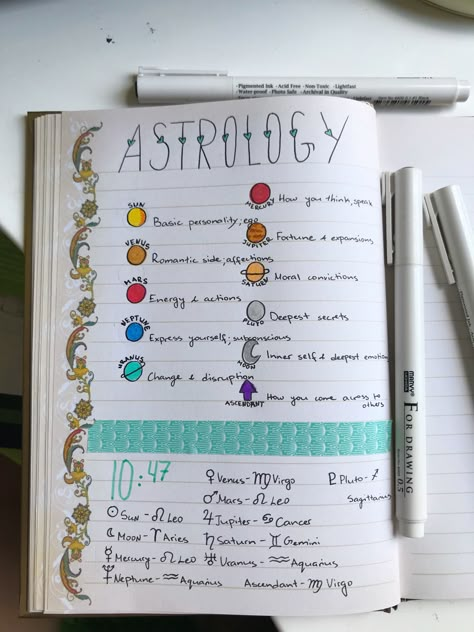 · Pigmented Ink · Acid Free · Non Toxic · Lightfast
· Water-proof · Photo Safe · Archival in Quality
ASTROLOGY
SUN
Basic personality; ego
VENUS
Romantic side; affections
MARS
Energy & actions
NEPTUNE
Express yourself; subconscious
URANUS
Change & disruption
MERCURY
How you think, speak
JUPITER
Fortune & expansions
SATURN
Moral convictions
PLUTO
Deepest secrets
MOON
Inner self & deepest emotion
ASCENDANT
How you come across to
others
10:47
♀ Venus - ♍ Virgo
♂ Mars - ♌ Leo
☉ Sun - ♌ Leo
♃ Jupiter - ♋ Cancer
☾ Moon - ♈ Aries
♄ Saturn - ♊ Gemini
☿ Mercury - ♌ Leo
♅ Uranus - ♒ Aquarius
♆ Neptune - ♒ Aquarius
Ascendant - ♍ Virgo
♇ Pluto - ♐
Sagittarius
MARVY
FOR DRAWING
0.5